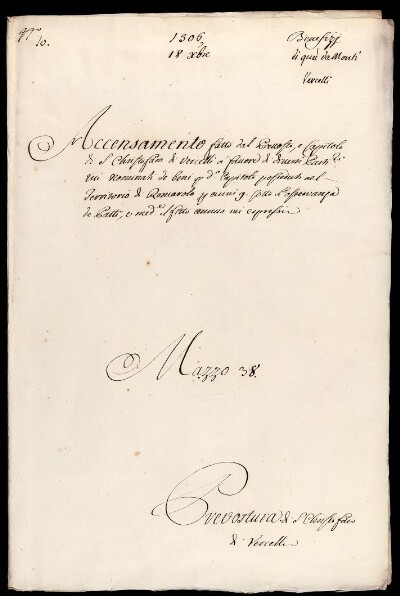 N.º 10.
1306
18 Xbre
Benefizj
di quà da Monti
Vercelli
Accensamento fatto dal Prevosto, e Capitolo
di S. Christoforo di Vercelli a favore di diversi Partri
ivi nominati de beni p. d.º Capitolo posseduti nel
Territorio di per anni 9. sotto l'osservanza
de Patti, e med. fitto annuo ivi espressi
Mazzo 38.
Prevostura di S. Christoforo
di Vercelli